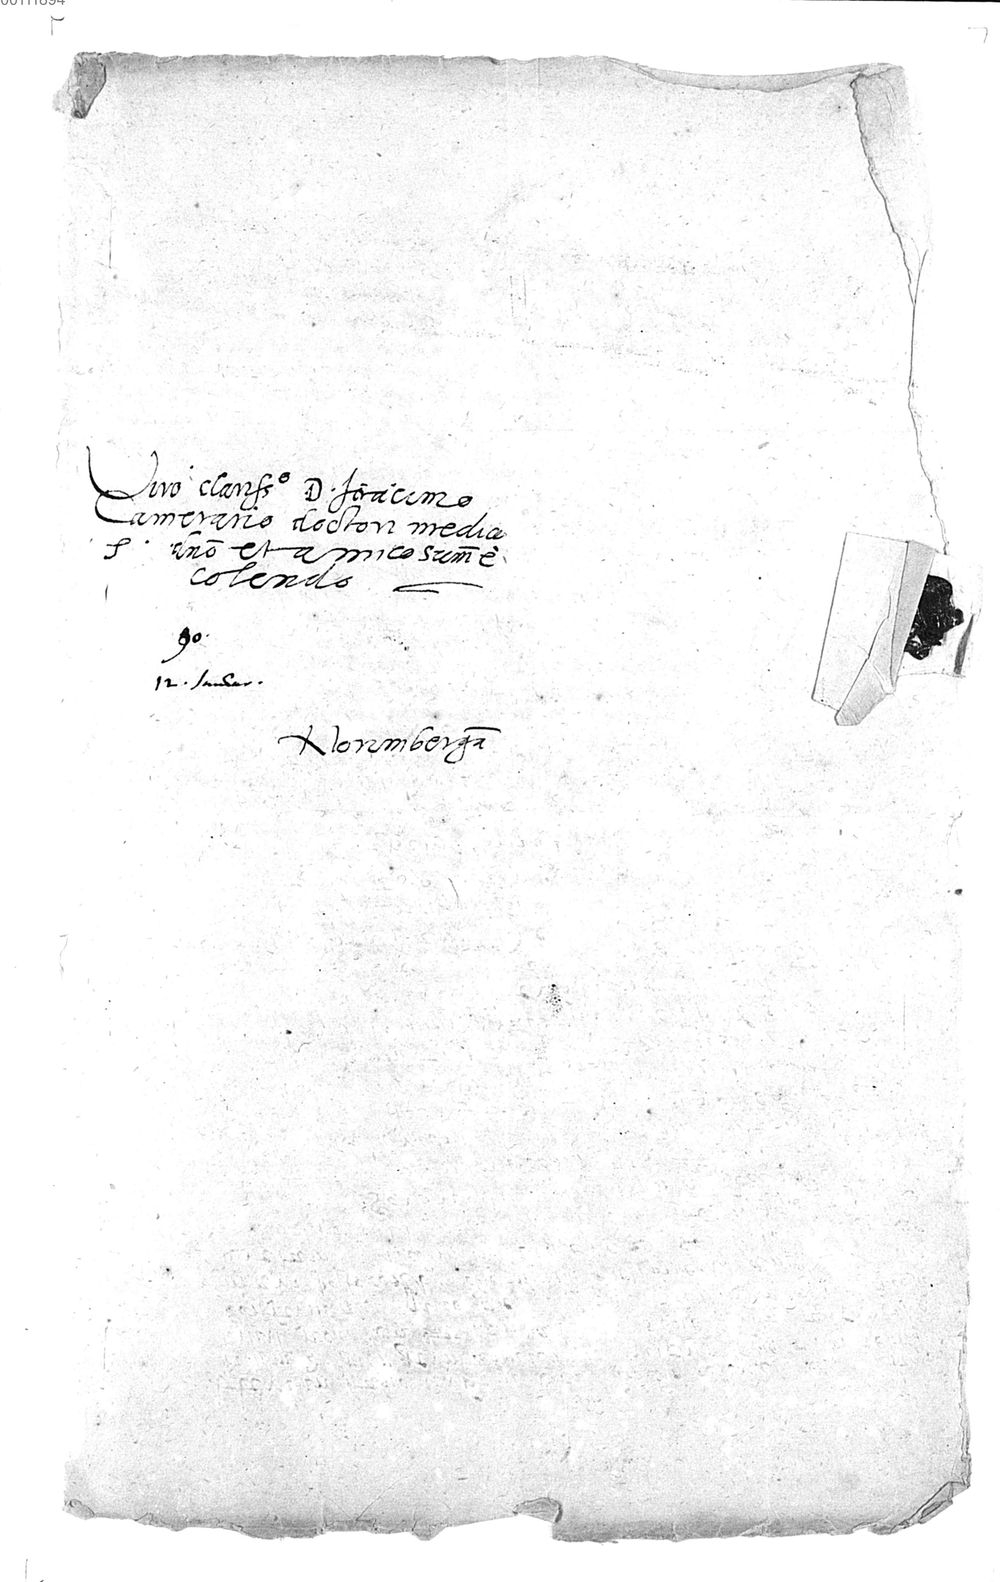 00111894
Viro clariss.º D. Joacimo
Camerario doctori medico
S. dnō et amico sum̄e
colendo
90.
12. 
Norimbergā